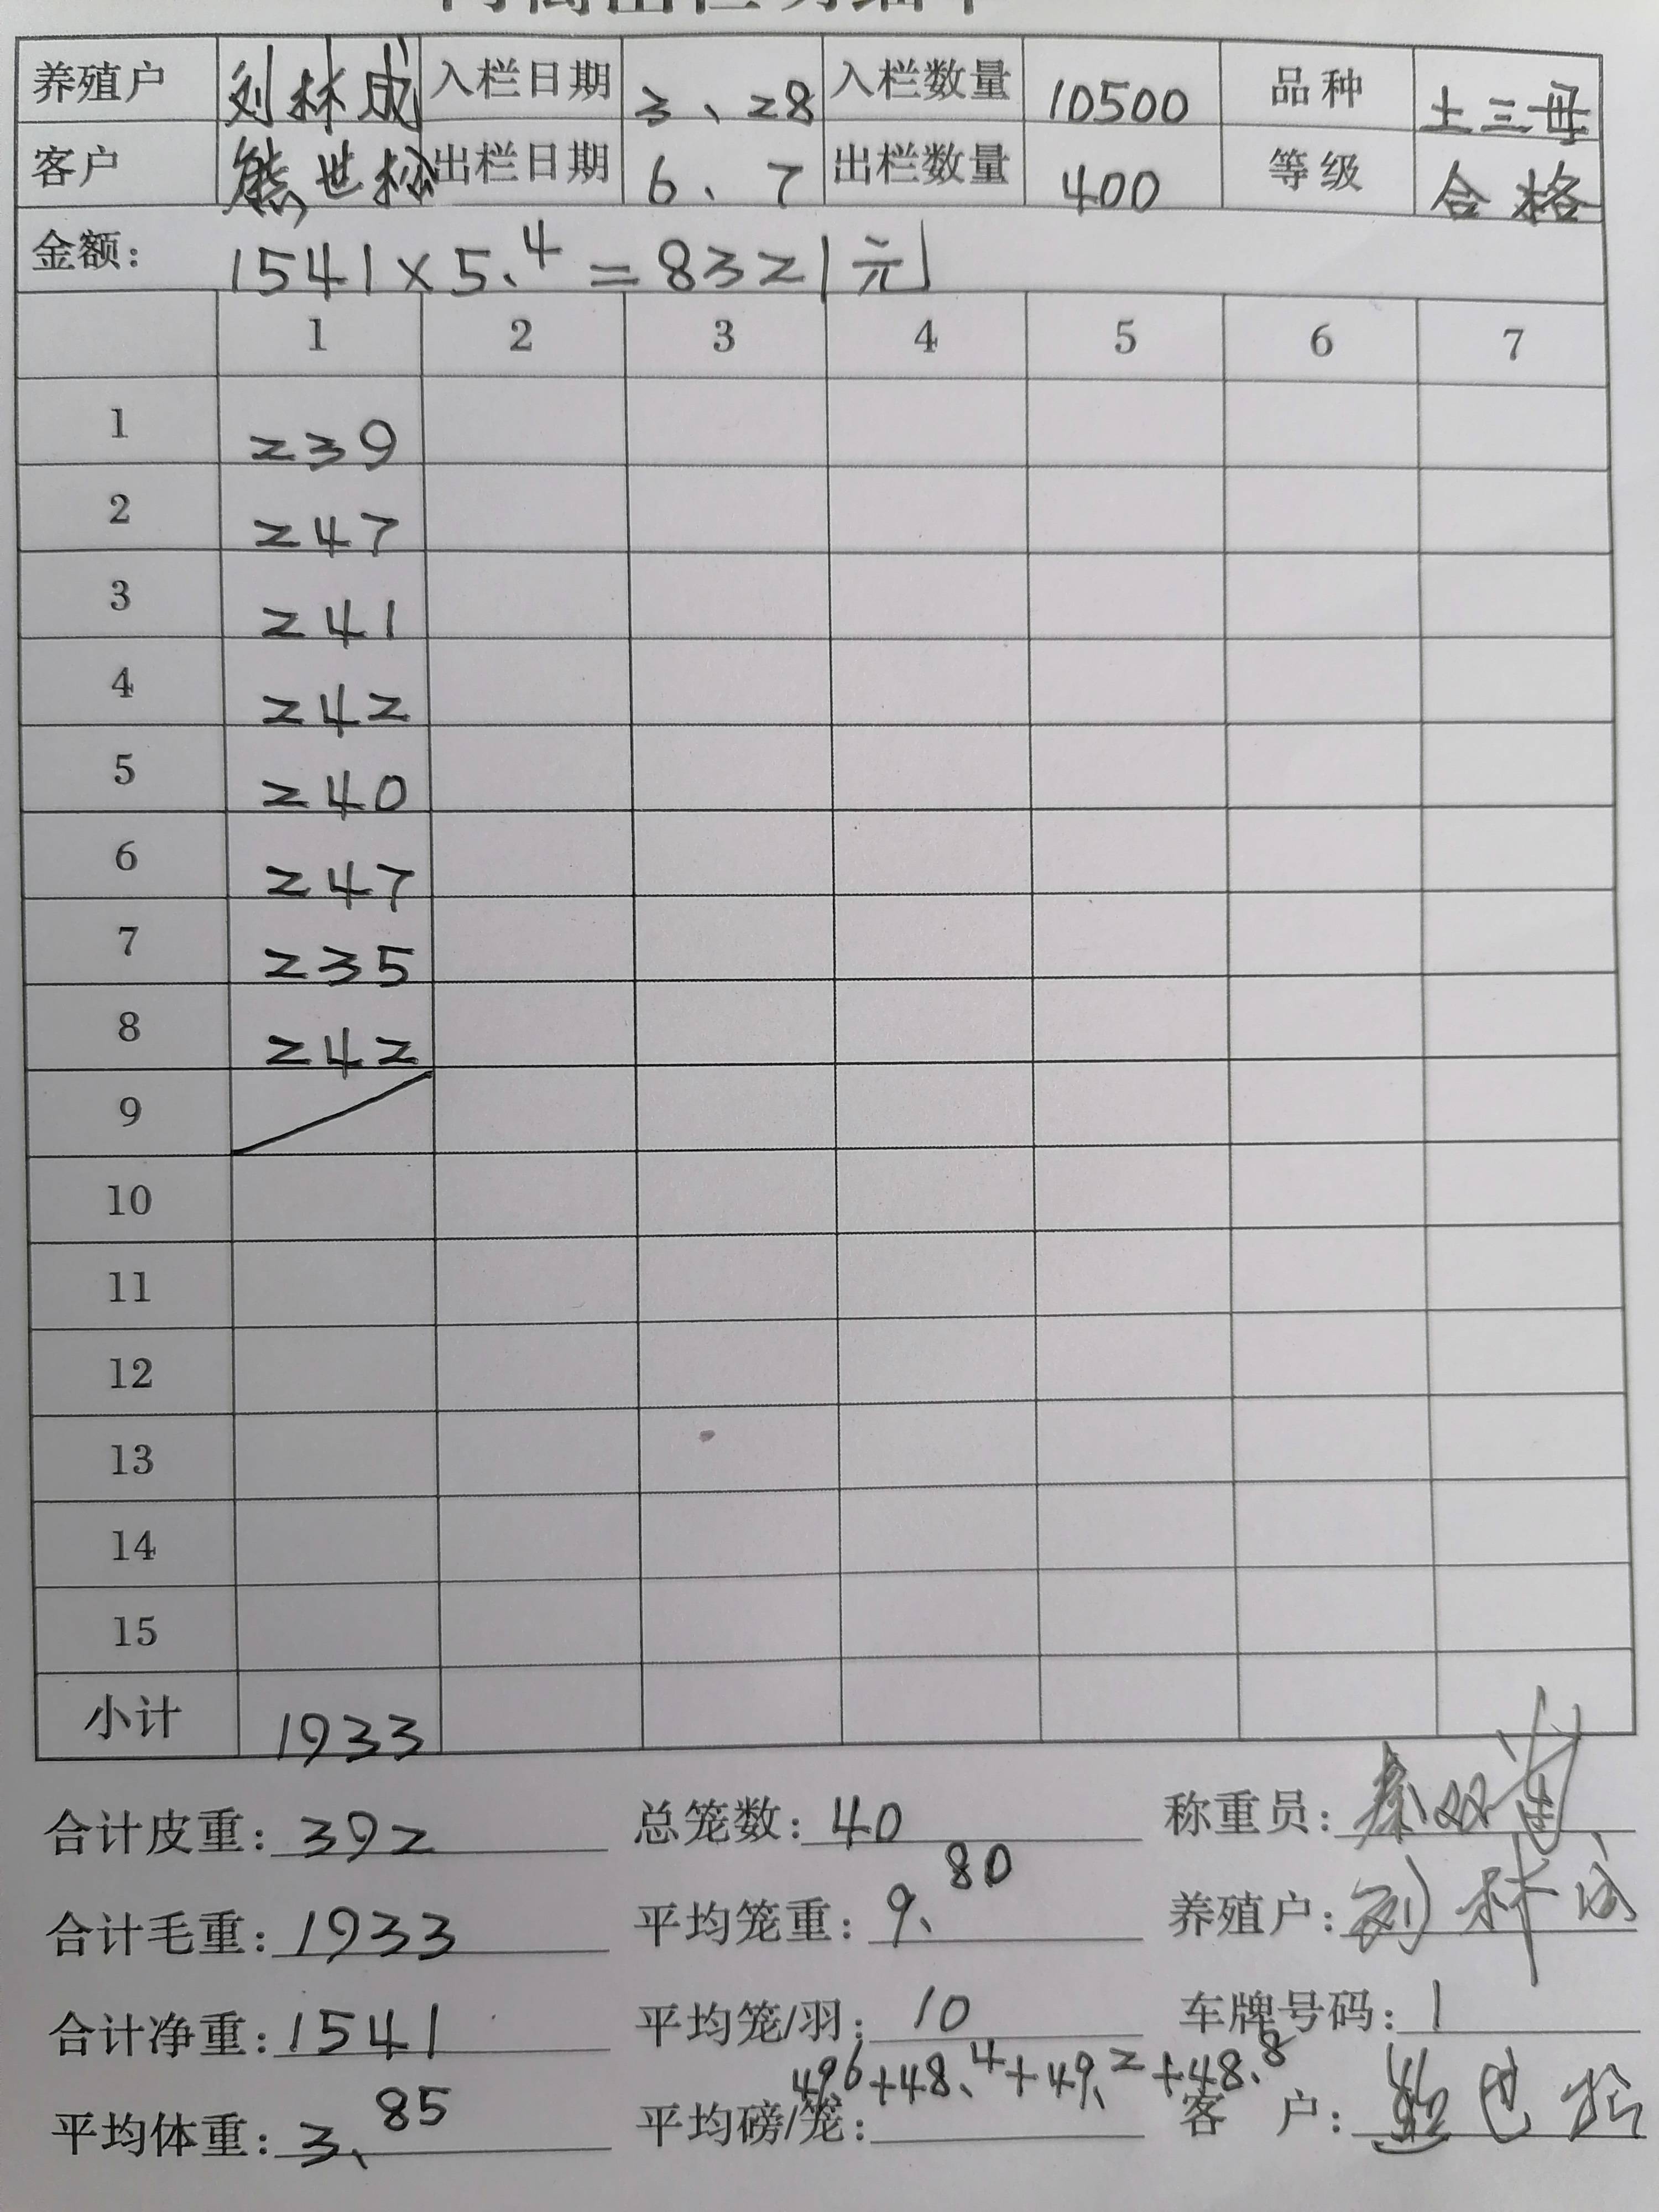 养殖户 刘林成 入栏日期 3、28 入栏数量 10500 品种 土三母
客户 熊世松 出栏日期 6、7 出栏数量 400 等级 合格
金额: 1541×5.4=8321元
1 2 3 4 5 6 7
1 239
2 247
3 241
4 242
5 240
6 247
7 235
8 242
9
10
11
12
13
14
15
小计 1933
合计皮重: 392 总笼数: 40 称重员:
合计毛重: 1933 平均笼重: 9、80 养殖户: 刘林成
合计净重: 1541 平均笼/羽: 10 车牌号码: 1
496+48.4+49.2+48.8
平均体重: 3、85 平均磅/笼: 客户: 熊世松